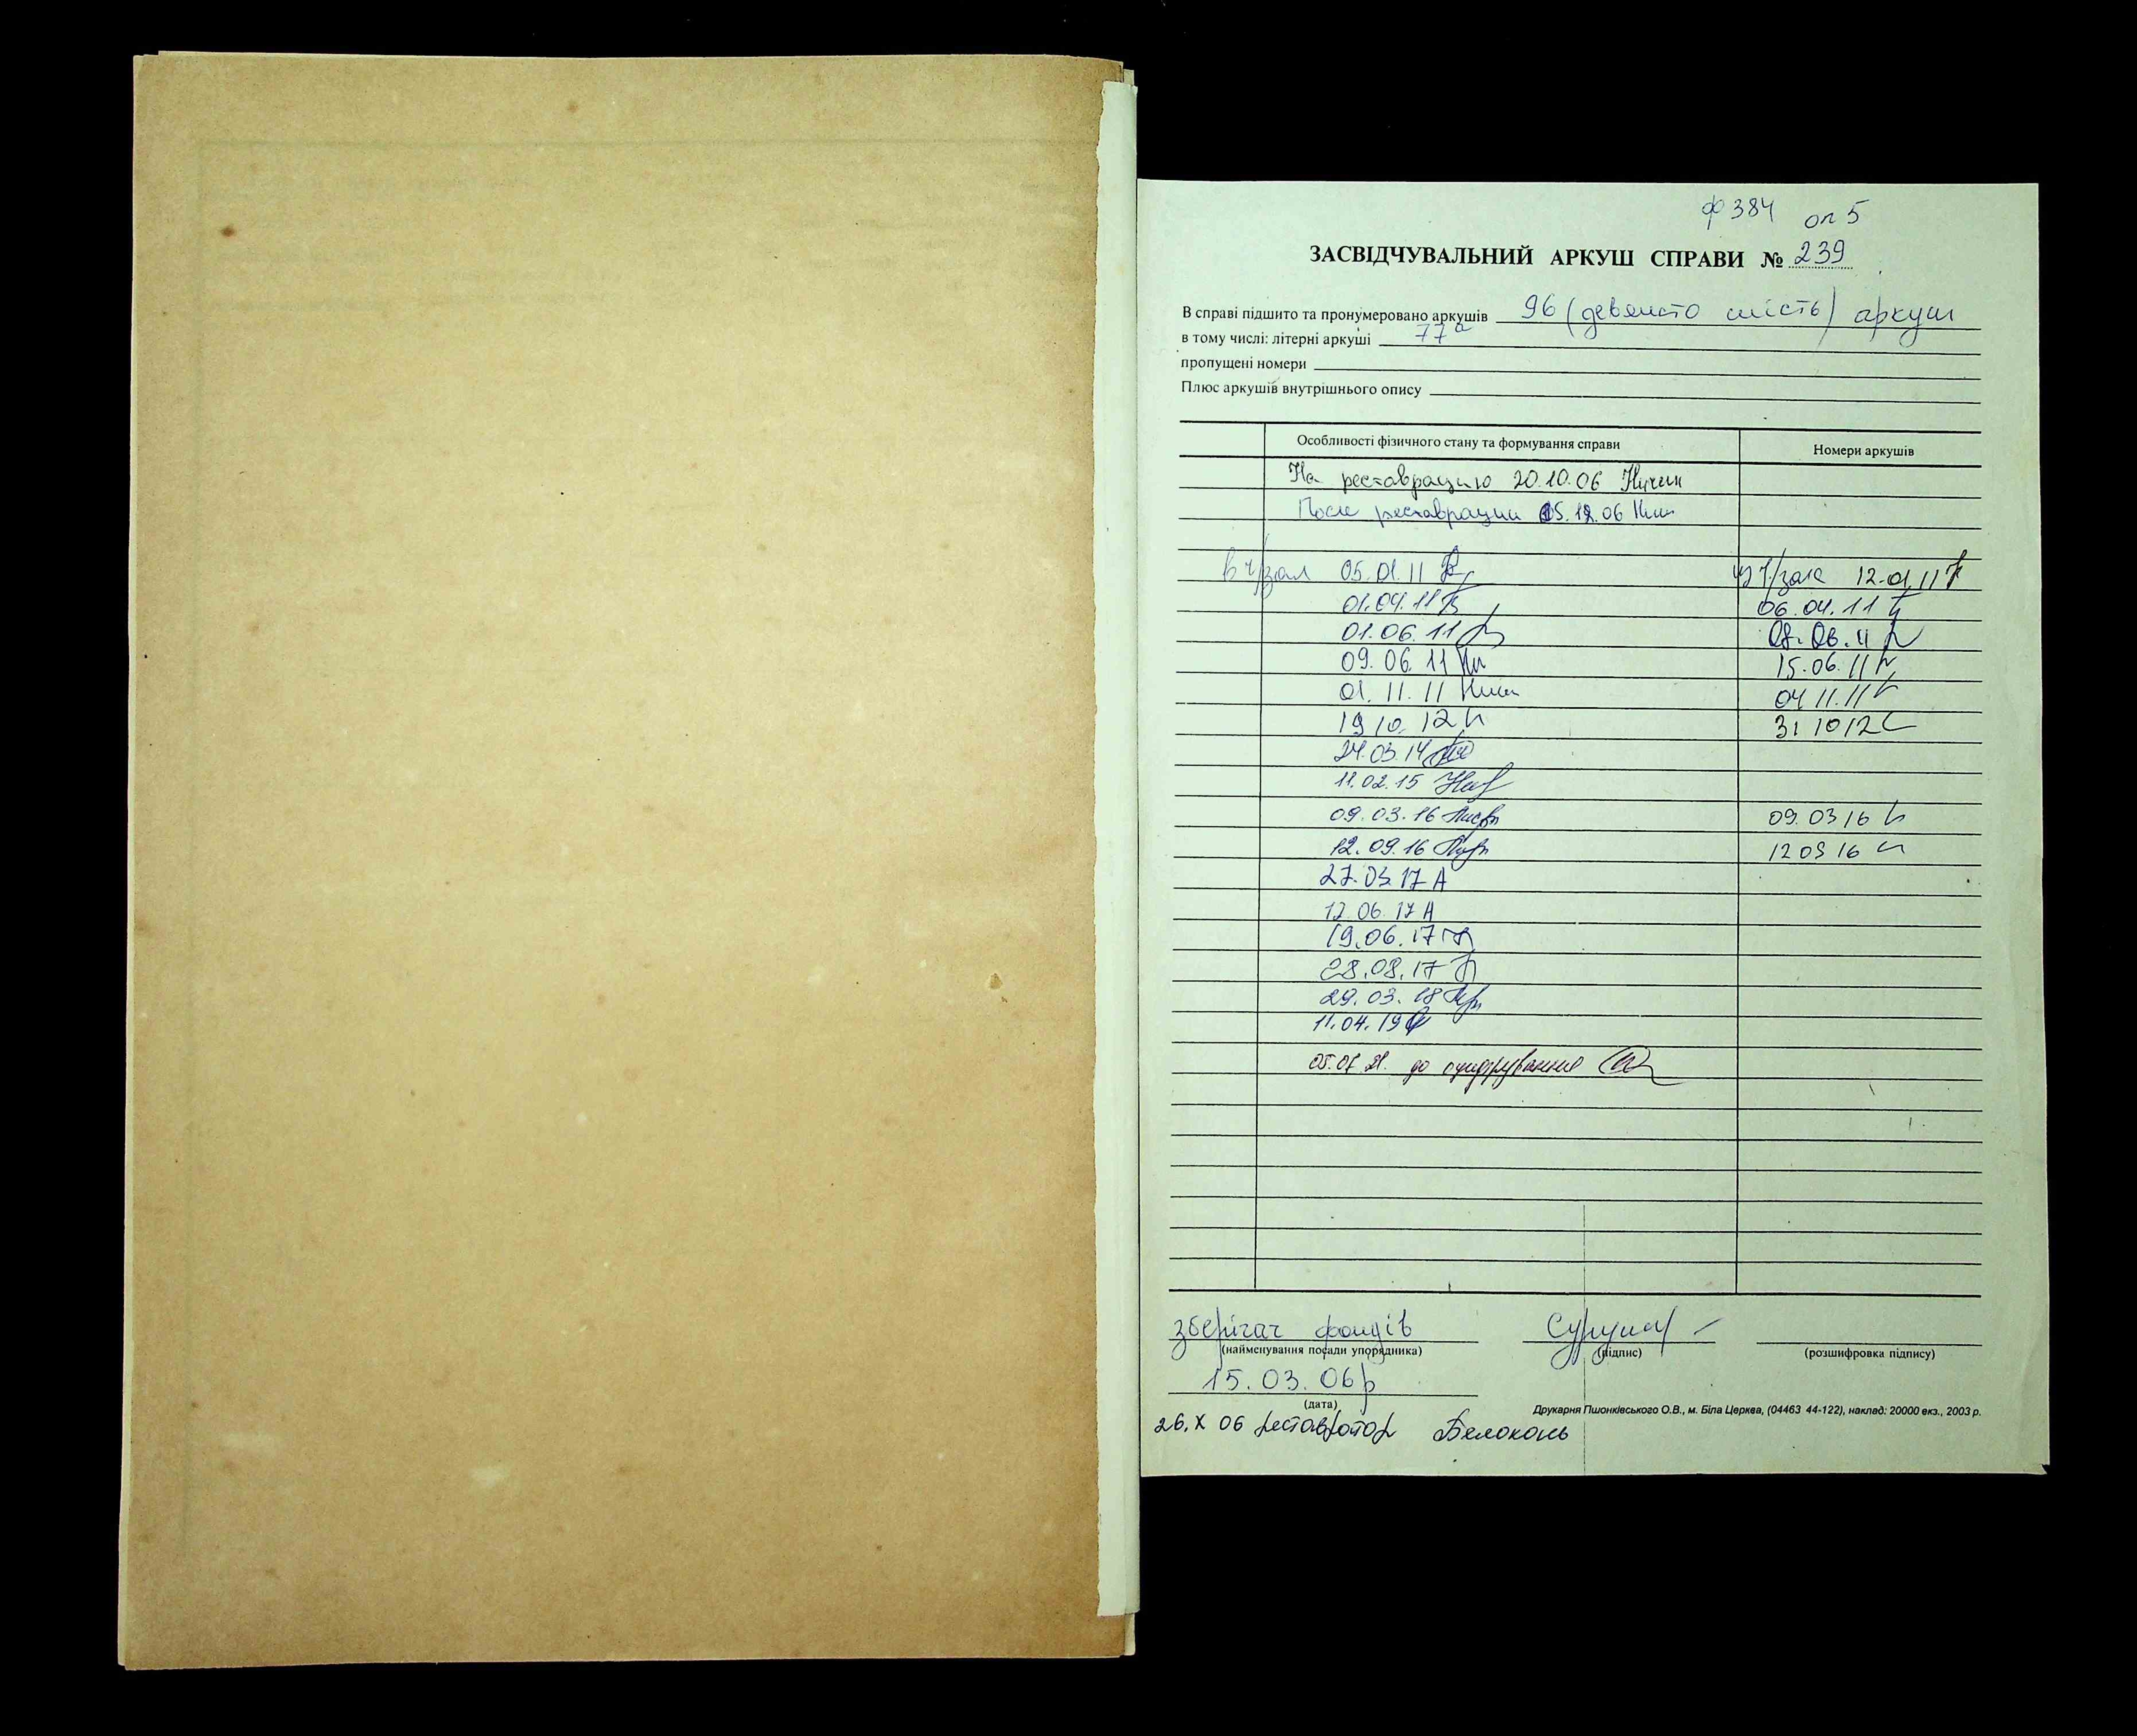 ф 384 оп 5
ЗАСВІДЧУВАЛЬНИЙ АРКУШ СПРАВИ № 239
В справі підшито та пронумеровано аркушів 96 (девяносто шість) аркуш
в тому числі: літерні аркуші 77а
пропущені номери
Плюс аркушів внутрішнього опису
Особливості фізичного стану та формування справи Номери аркушів
На реставрацию 20.10.06
После реставрации 05.12.06
в ч/зал 05.01.11 из ч/зала 12.01.11
01.04.11 06.04.11
01.06.11 08.06.11
09.06.11 15.06.11
01.11.11 04 11.11
19 10. 12 31 10 12
24.03.14
11.02.15
09.03.16 09.03 16
12.09.16 12 09 16
27.03.17 А
12.06.17 А
19.06.17
28.08.17
29.03.18
11.04.19
05.07.21. до оцифрування
зберігач фондів
(найменування посади упорядника) (підпис) (розшифровка підпису)
15.03.06р
(дата)
Друкарня Пшонківського О.В., м. Біла Церква, (04463 44-122), наклад: 20000 екз., 2003 р.
26.X 06 реставратор Белоконь